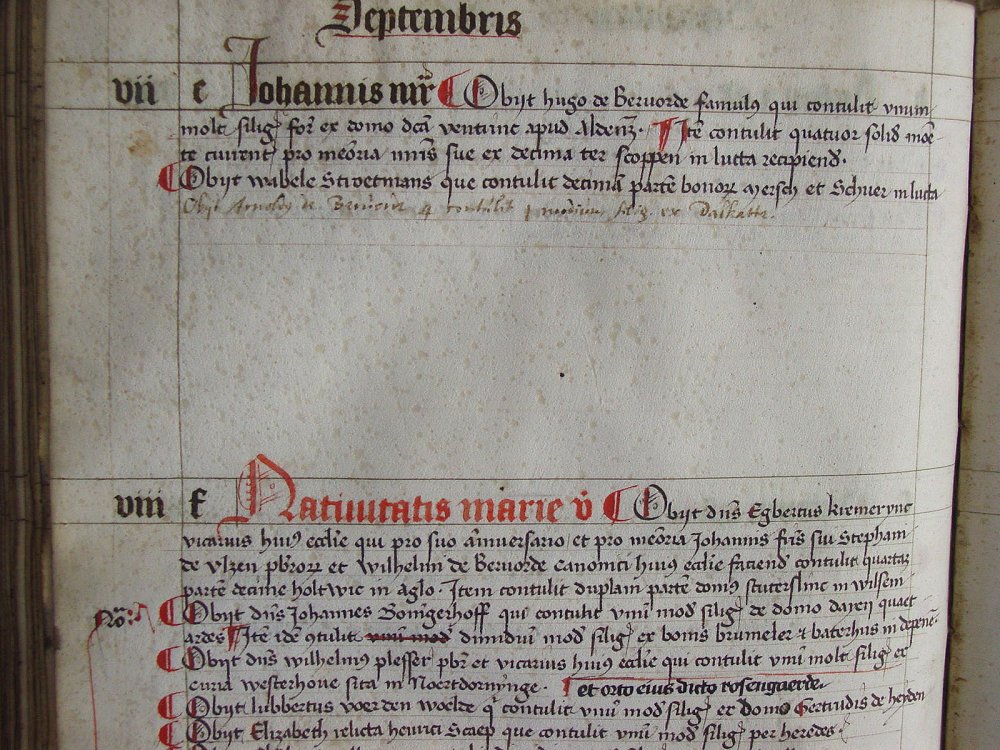 Septembris
vii e Johannis mr̄ Obijt hugo de Beruorde famulꝰ qui contulit vnum
molt siliḡ for̄ ex domo dc̄a ventinc apud Aldenz̄. Itē contulit quatuor solid mōe
te current̄ pro mēoria vnius sue ex decima ter scoppen in lutta recipiend.
Obijt wabele Stroetmans que contulit decimā partē bonoꝝ mersch et Schuer in lutta
Obijt Arnoldꝰ de Beuerue q contulit 1 modium silig. ex Dalkatte.
viii f Natiuitatis marie v̄ Obijt dn̄s Egbertus kremerync
vicarius huiꝰ ecclīe qui pro suo ān̄iversario et pro mēoria Johannis fr̄is sui Stephani
de vlzen pb̄roꝝ et wilhelmi de Beruorde canonici huiꝰ ecclīe faciend contulit quartaꝫ
partē decime holtwic in aglo. Item contulit duplam partē domꝰ scuterslinc in wilsem
No: Obijt dn̄s Johannes Bonīgerhoff qui contulit vnū mod siliḡ de domo daren quaet
ardes Itē idē ↄtulit vnū mod dimidiū mod siliḡ ex bonis brumeler ⁊ baterhus in depenē
Obijt dn̄s wilhelmꝰ plesser pb̄r et vicarius huiꝰ ecclīe qui contulit vnū molt siliḡ ex
curia westerhoue sita in Noertdornynge. et orto eius dicto rosengaerde.
Obijt lubbertus voerden woelde q̄ contulit vnū mod siliḡ ex domo Gertrudis de heyden
Obijt Elizabeth relicta henrici Scaep que contulit vnū mod siliḡ per heredes.